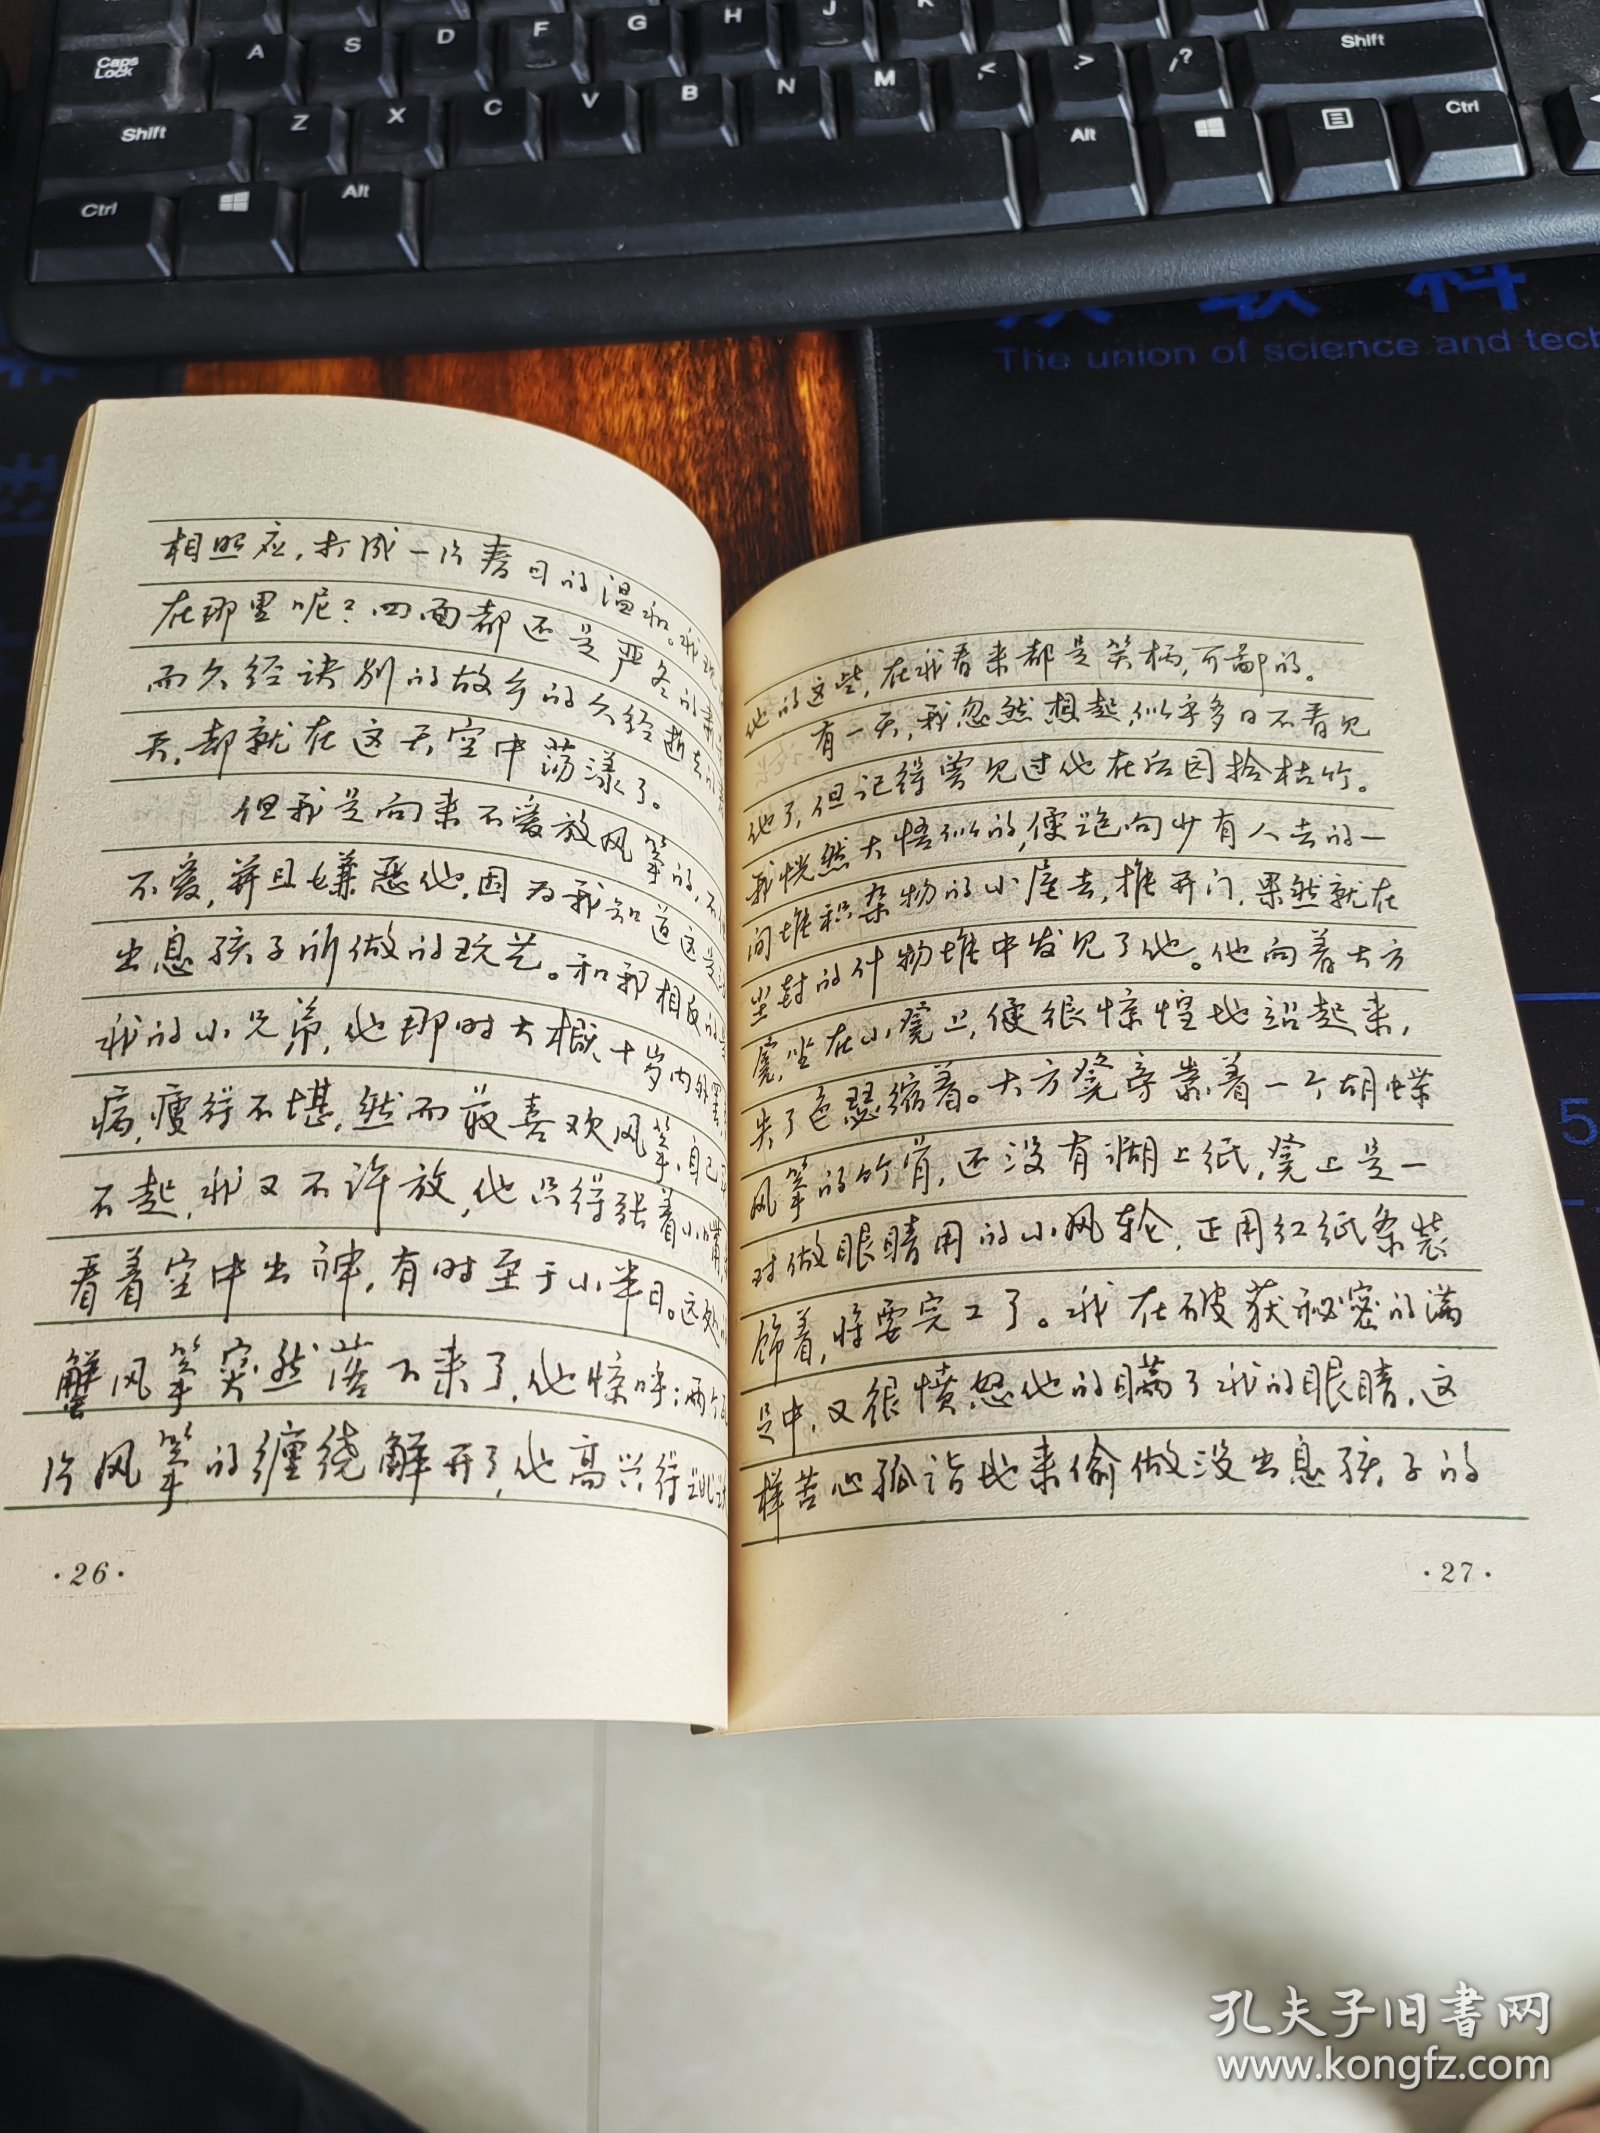 Caps Lock
A
S
D
F
G
H
J
K
L
Shift
Z
X
C
V
B
N
M
,<
.>
/?
Shift
Ctrl
Alt
Alt
Ctrl
联 科
The union of science and tech
5
相照应，打成一片春日的温和。我现
在那里呢？四面都还是严冬的肃
而久经诀别的故乡的久经逝去的
天，却就在这天空中荡漾了。
但我是向来不爱放风筝的，不
不爱，并且嫌恶他，因为我知道这是
出息孩子所做的玩艺。和我相反的
我的小兄弟，他那时大概十岁内外
病，瘦得不堪，然而最喜欢风筝，自己
不起，我又不许放，他只得张着小嘴，
看着空中出神，有时至于小半日。远处
蟹风筝突然落下来了，他惊呼；两个
片风筝的缠绕解开了，他高兴得
·26·
他的这些，在我看来都是笑柄，可鄙的。
有一天，我忽然想起，似乎多日不看见
他了，但记得曾见过他在后园拾枯竹。
我恍然大悟似的，便跑向少有人去的一
间堆积杂物的小屋去，推开门，果然就在
尘封的什物堆中发见了他。他向着大方
凳，坐在小凳上，便很惊惶地站起来，
失了色瑟缩着。大方凳旁靠着一个胡蝶
风筝的竹骨，还没有糊上纸，凳上是一
对做眼睛用的小风轮，正用红纸条装
饰着，将要完工了。我在破获秘密的满
足中，又很愤怒他的瞒了我的眼睛，这
样苦心孤诣地来偷做没出息孩子的
·27·
孔夫子旧书网
www.kongfz.com